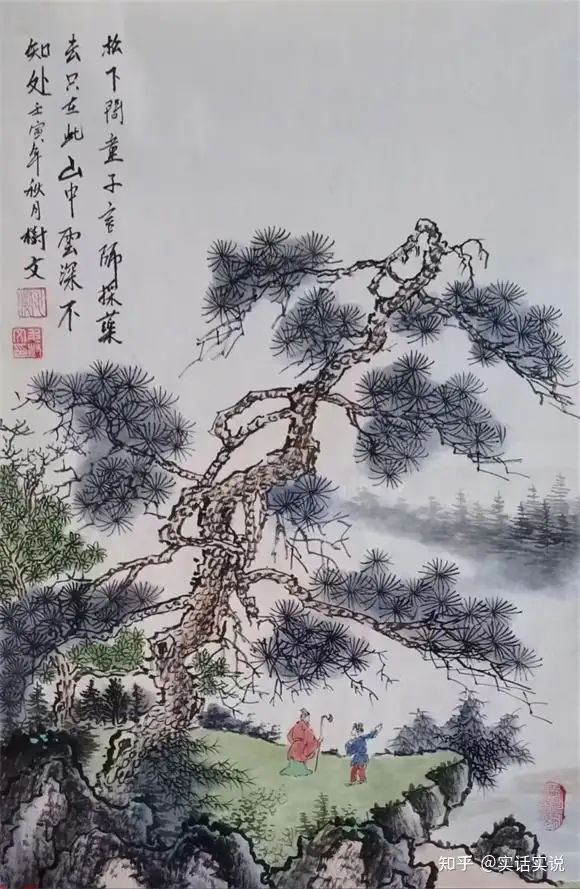 松下問童子言師採藥
去只在此山中雲深不
知处壬寅年秋月樹文
知乎 @实话实说